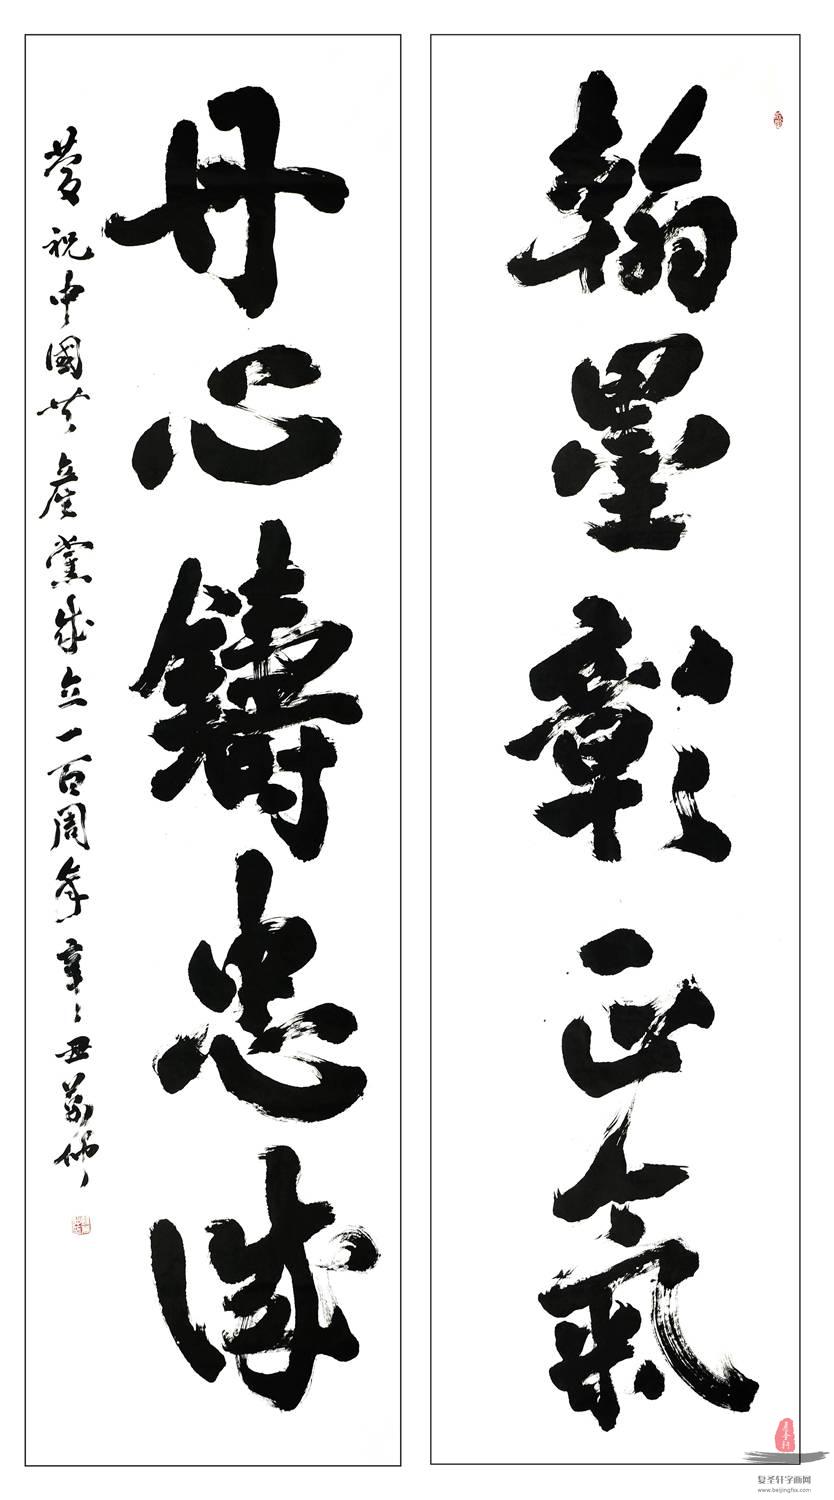 翰墨彰正氣
丹心鑄忠誠
慶祝中國共產黨成立一百周年辛丑
复圣轩字画网
www.beijingfsx.com